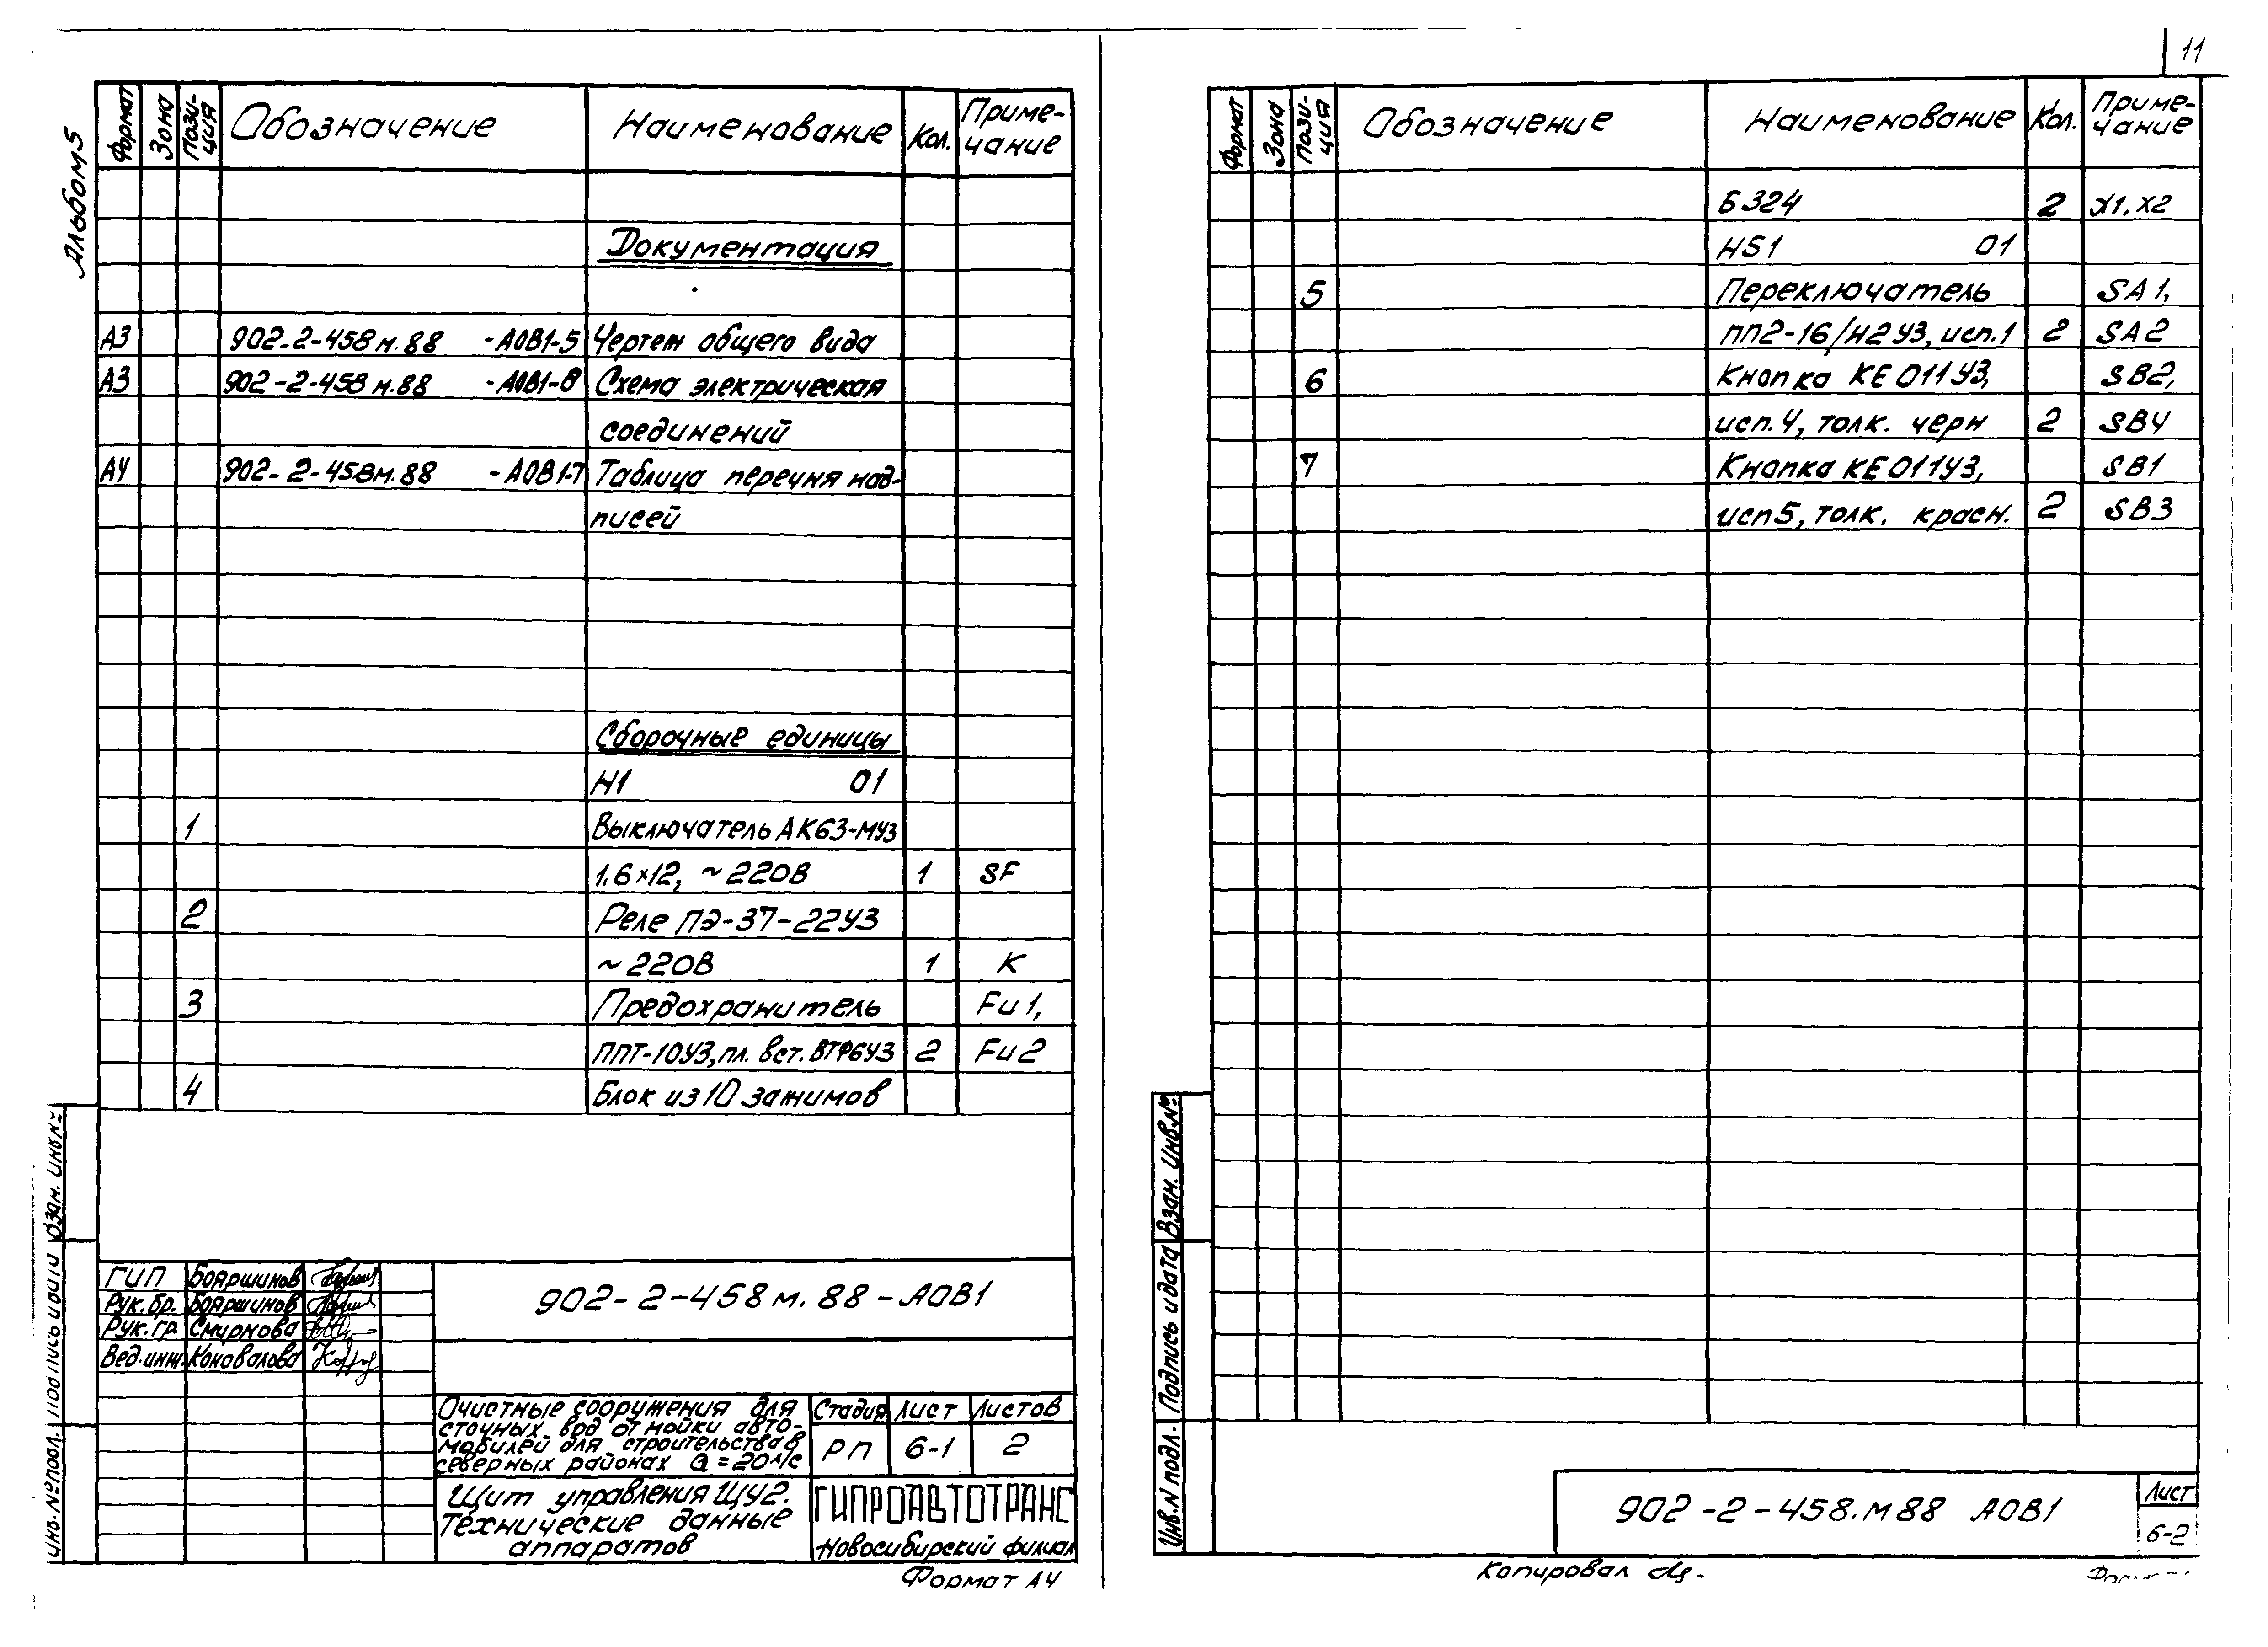 11
Альбом 5
Формат Зона Пози-ция Обозначение Наименование Кол. Приме-чание
Документация
А3 902-2-458м.88 -АОВ1-5 Чертеж общего вида
А3 902-2-458м.88 -АОВ1-8 Схема электрическая
соединений
А4 902-2-458м.88 -АОВ1-7 Таблица перечня над-
писей
Сборочные единицы
Н1 01
1 Выключатель АК63-МУ3
1,6х12, ~220В 1 SF
2 Реле ПЭ-37-22У3
~220В 1 К
3 Предохранитель Fu1,
ППТ-10У3, пл. вст. ВТФ6У3 2 Fu2
4 Блок из 10 зажимов
Взам. инв.№
Подпись и дата
Инв.№ подл.
ГИП Бояршинов
Рук.бр. Бояршинов
Рук.гр. Смирнова
Вед.инж. Коновалова
902-2-458м.88-АОВ1
Очистные сооружения для
сточных вод от мойки авто-
мобилей для строительства в
северных районах Q=20л/с
Стадия Лист Листов
РП 6-1 2
Щит управления ЩУ2.
Технические данные
аппаратов
ГИПРОАВТОТРАНС
Новосибирский филиал
Формат А4
Формат Зона Пози-ция Обозначение Наименование Кол. Приме-чание
Б324 2 Х1, Х2
HS1 01
5 Переключатель SA1,
ПП2-16/Н2У3, исп.1 2 SA2
6 Кнопка КЕ011У3, SB2,
исп.4, толк. черн 2 SB4
7 Кнопка КЕ011У3, SB1
исп5, толк. красн. 2 SB3
Взам. Инв.№
Подпись и дата
Инв.N подл.
902-2-458.м88 АОВ1
Лист
6-2
Копировал